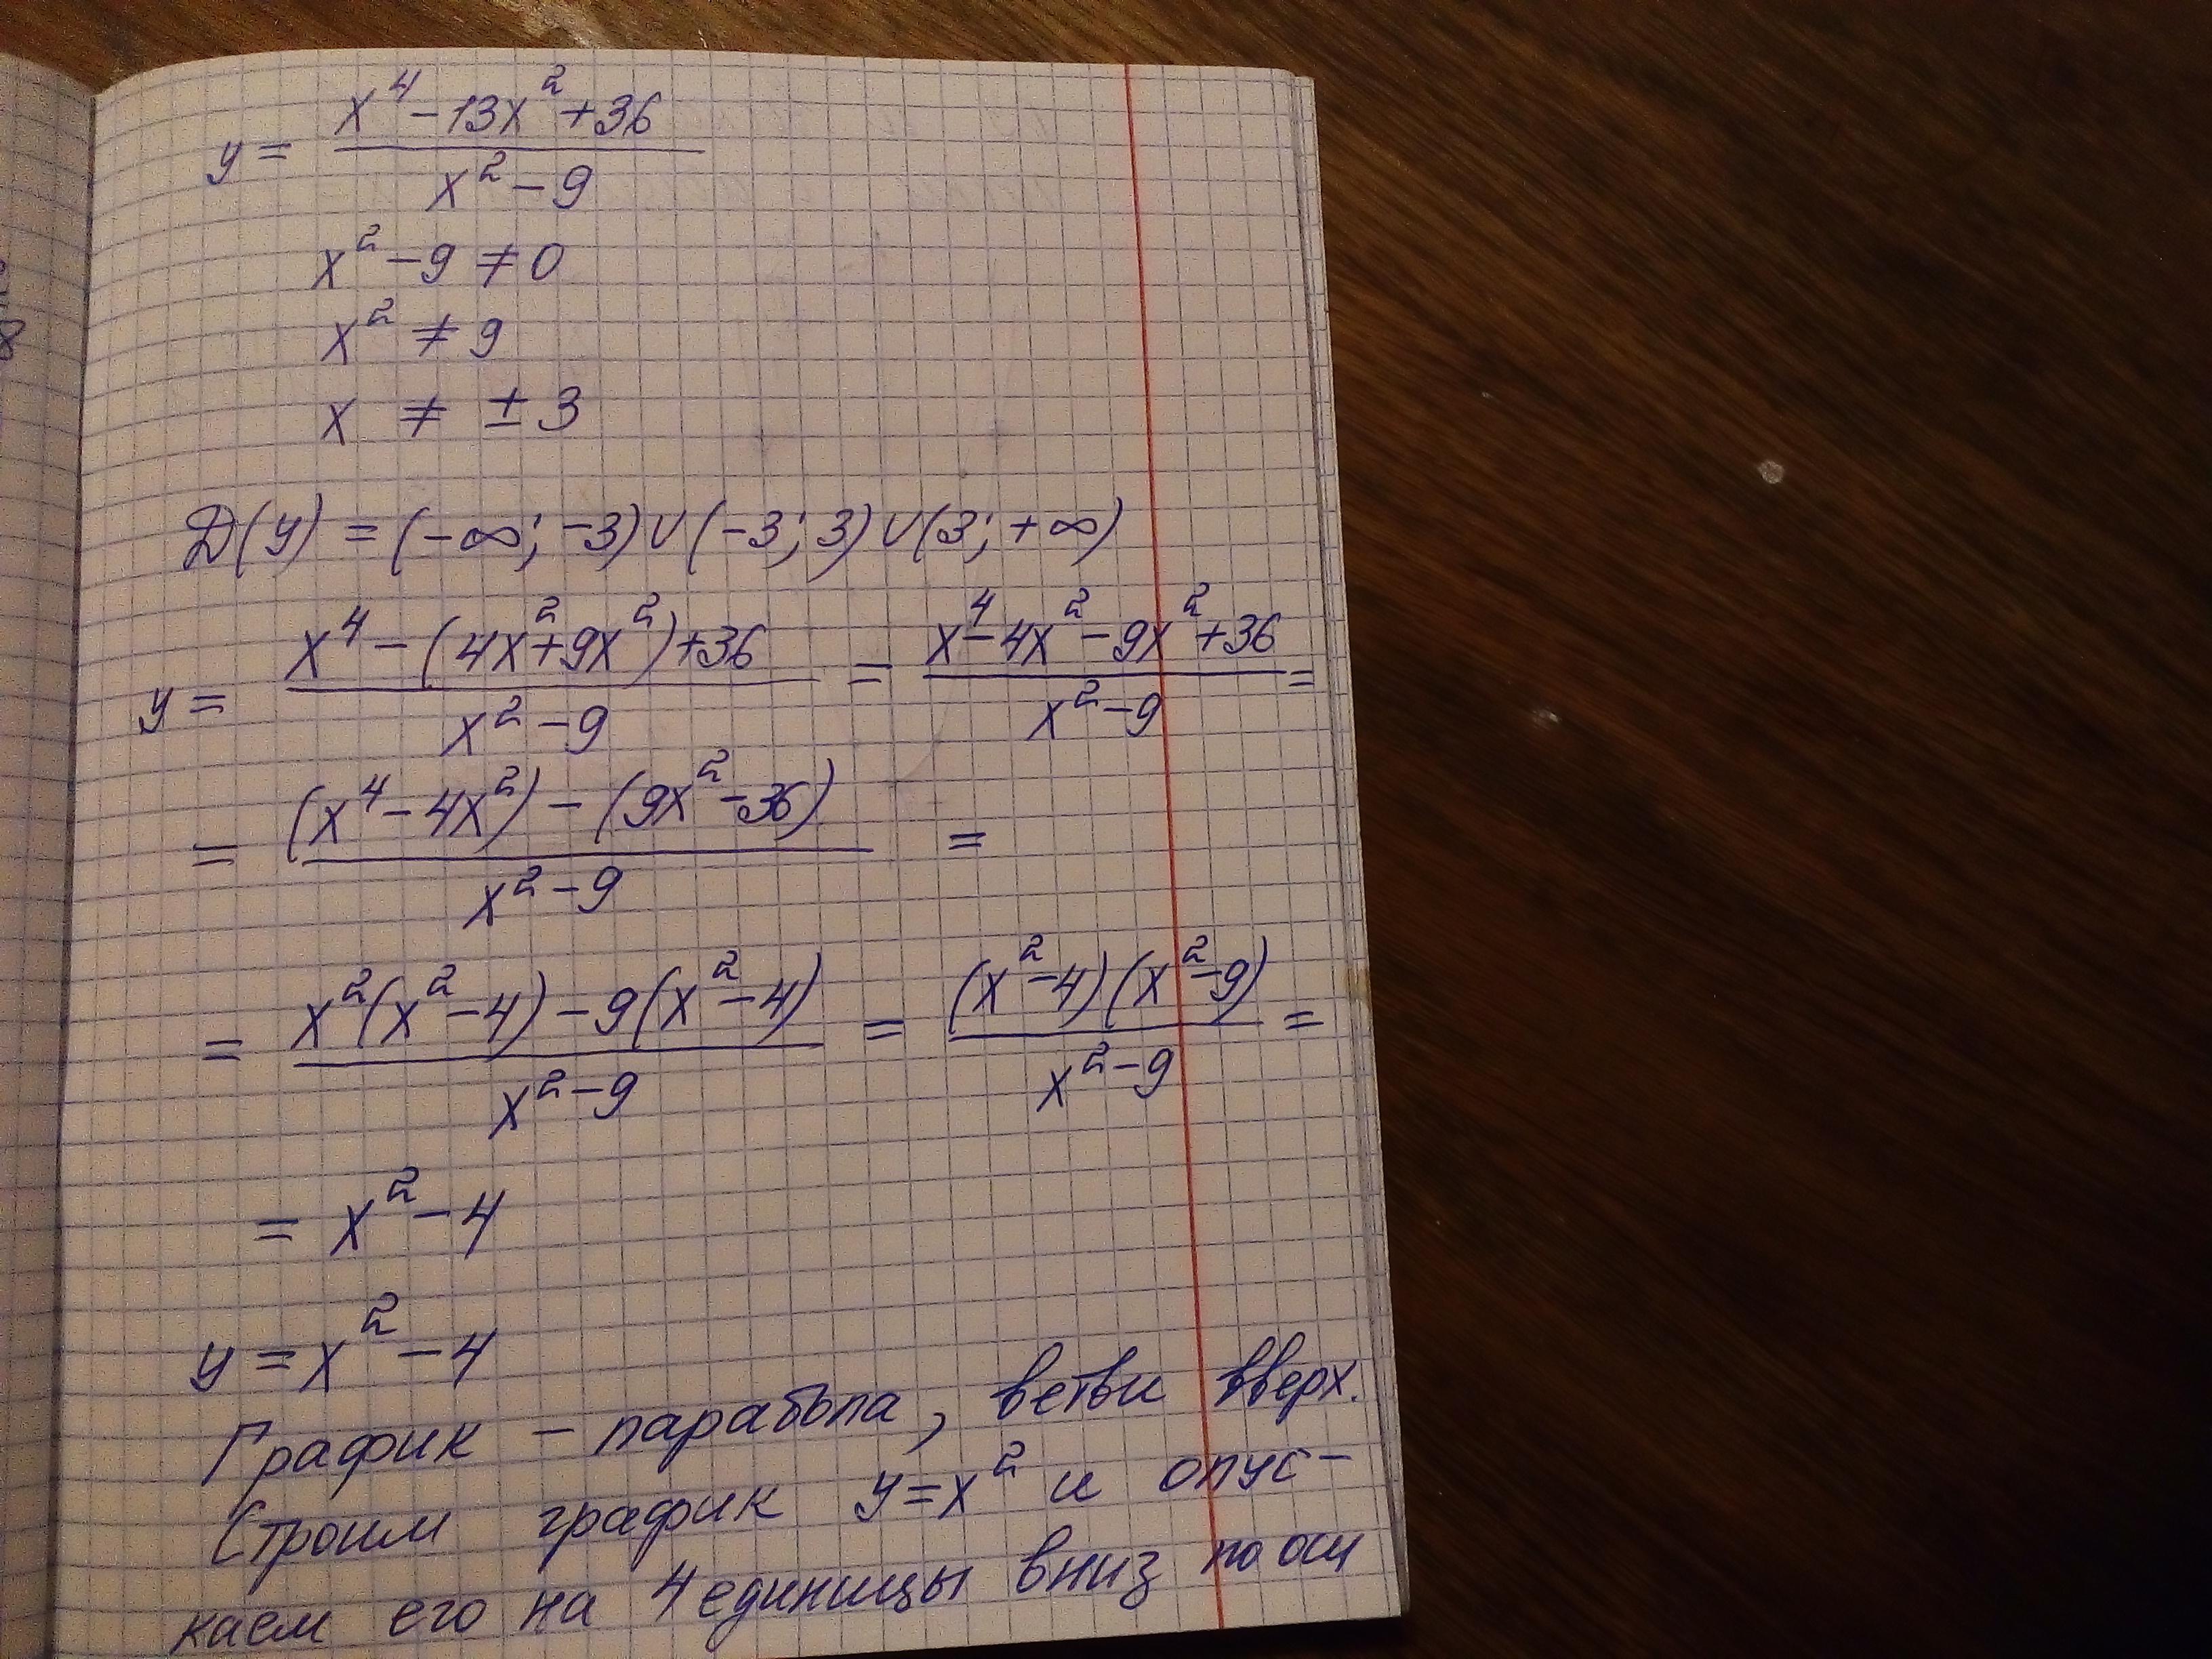 y = (x⁴ - 13x² + 36) / (x² - 9)
x² - 9 ≠ 0
x² ≠ 9
x ≠ ± 3
D(y) = (-∞; -3) ∪ (-3; 3) ∪ (3; +∞)
y = (x⁴ - (4x² + 9x²) + 36) / (x² - 9) = (x⁴ - 4x² - 9x² + 36) / (x² - 9) =
= ((x⁴ - 4x²) - (9x² - 36)) / (x² - 9) =
= (x²(x² - 4) - 9(x² - 4)) / (x² - 9) = ((x² - 4)(x² - 9)) / (x² - 9) =
= x² - 4
y = x² - 4
График - парабола, ветви вверх.
Строим график y = x² и опус-
каем его на 4 единицы вниз по оси